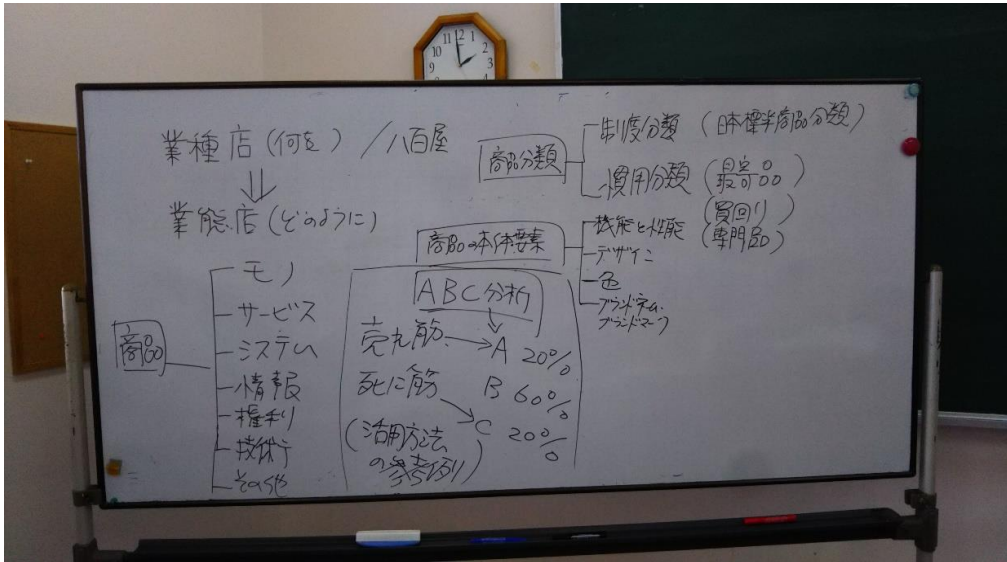 業種店(何を) / 八百屋
業態店(どのように)
商品
モノ
サービス
システム
情報
権利
技術
その他
商品分類
制度分類 (日本標準商品分類)
慣用分類 (最寄品)
(買回り)
(専門品)
商品の本体要素
機能と性能
デザイン
色
ブランドネーム・
ブランドマーク
ABC分析
売れ筋 A 20%
死に筋 B 60%
C 20%
(活用方法
の参考例)
11 12 1
10 2
9 3
8 4